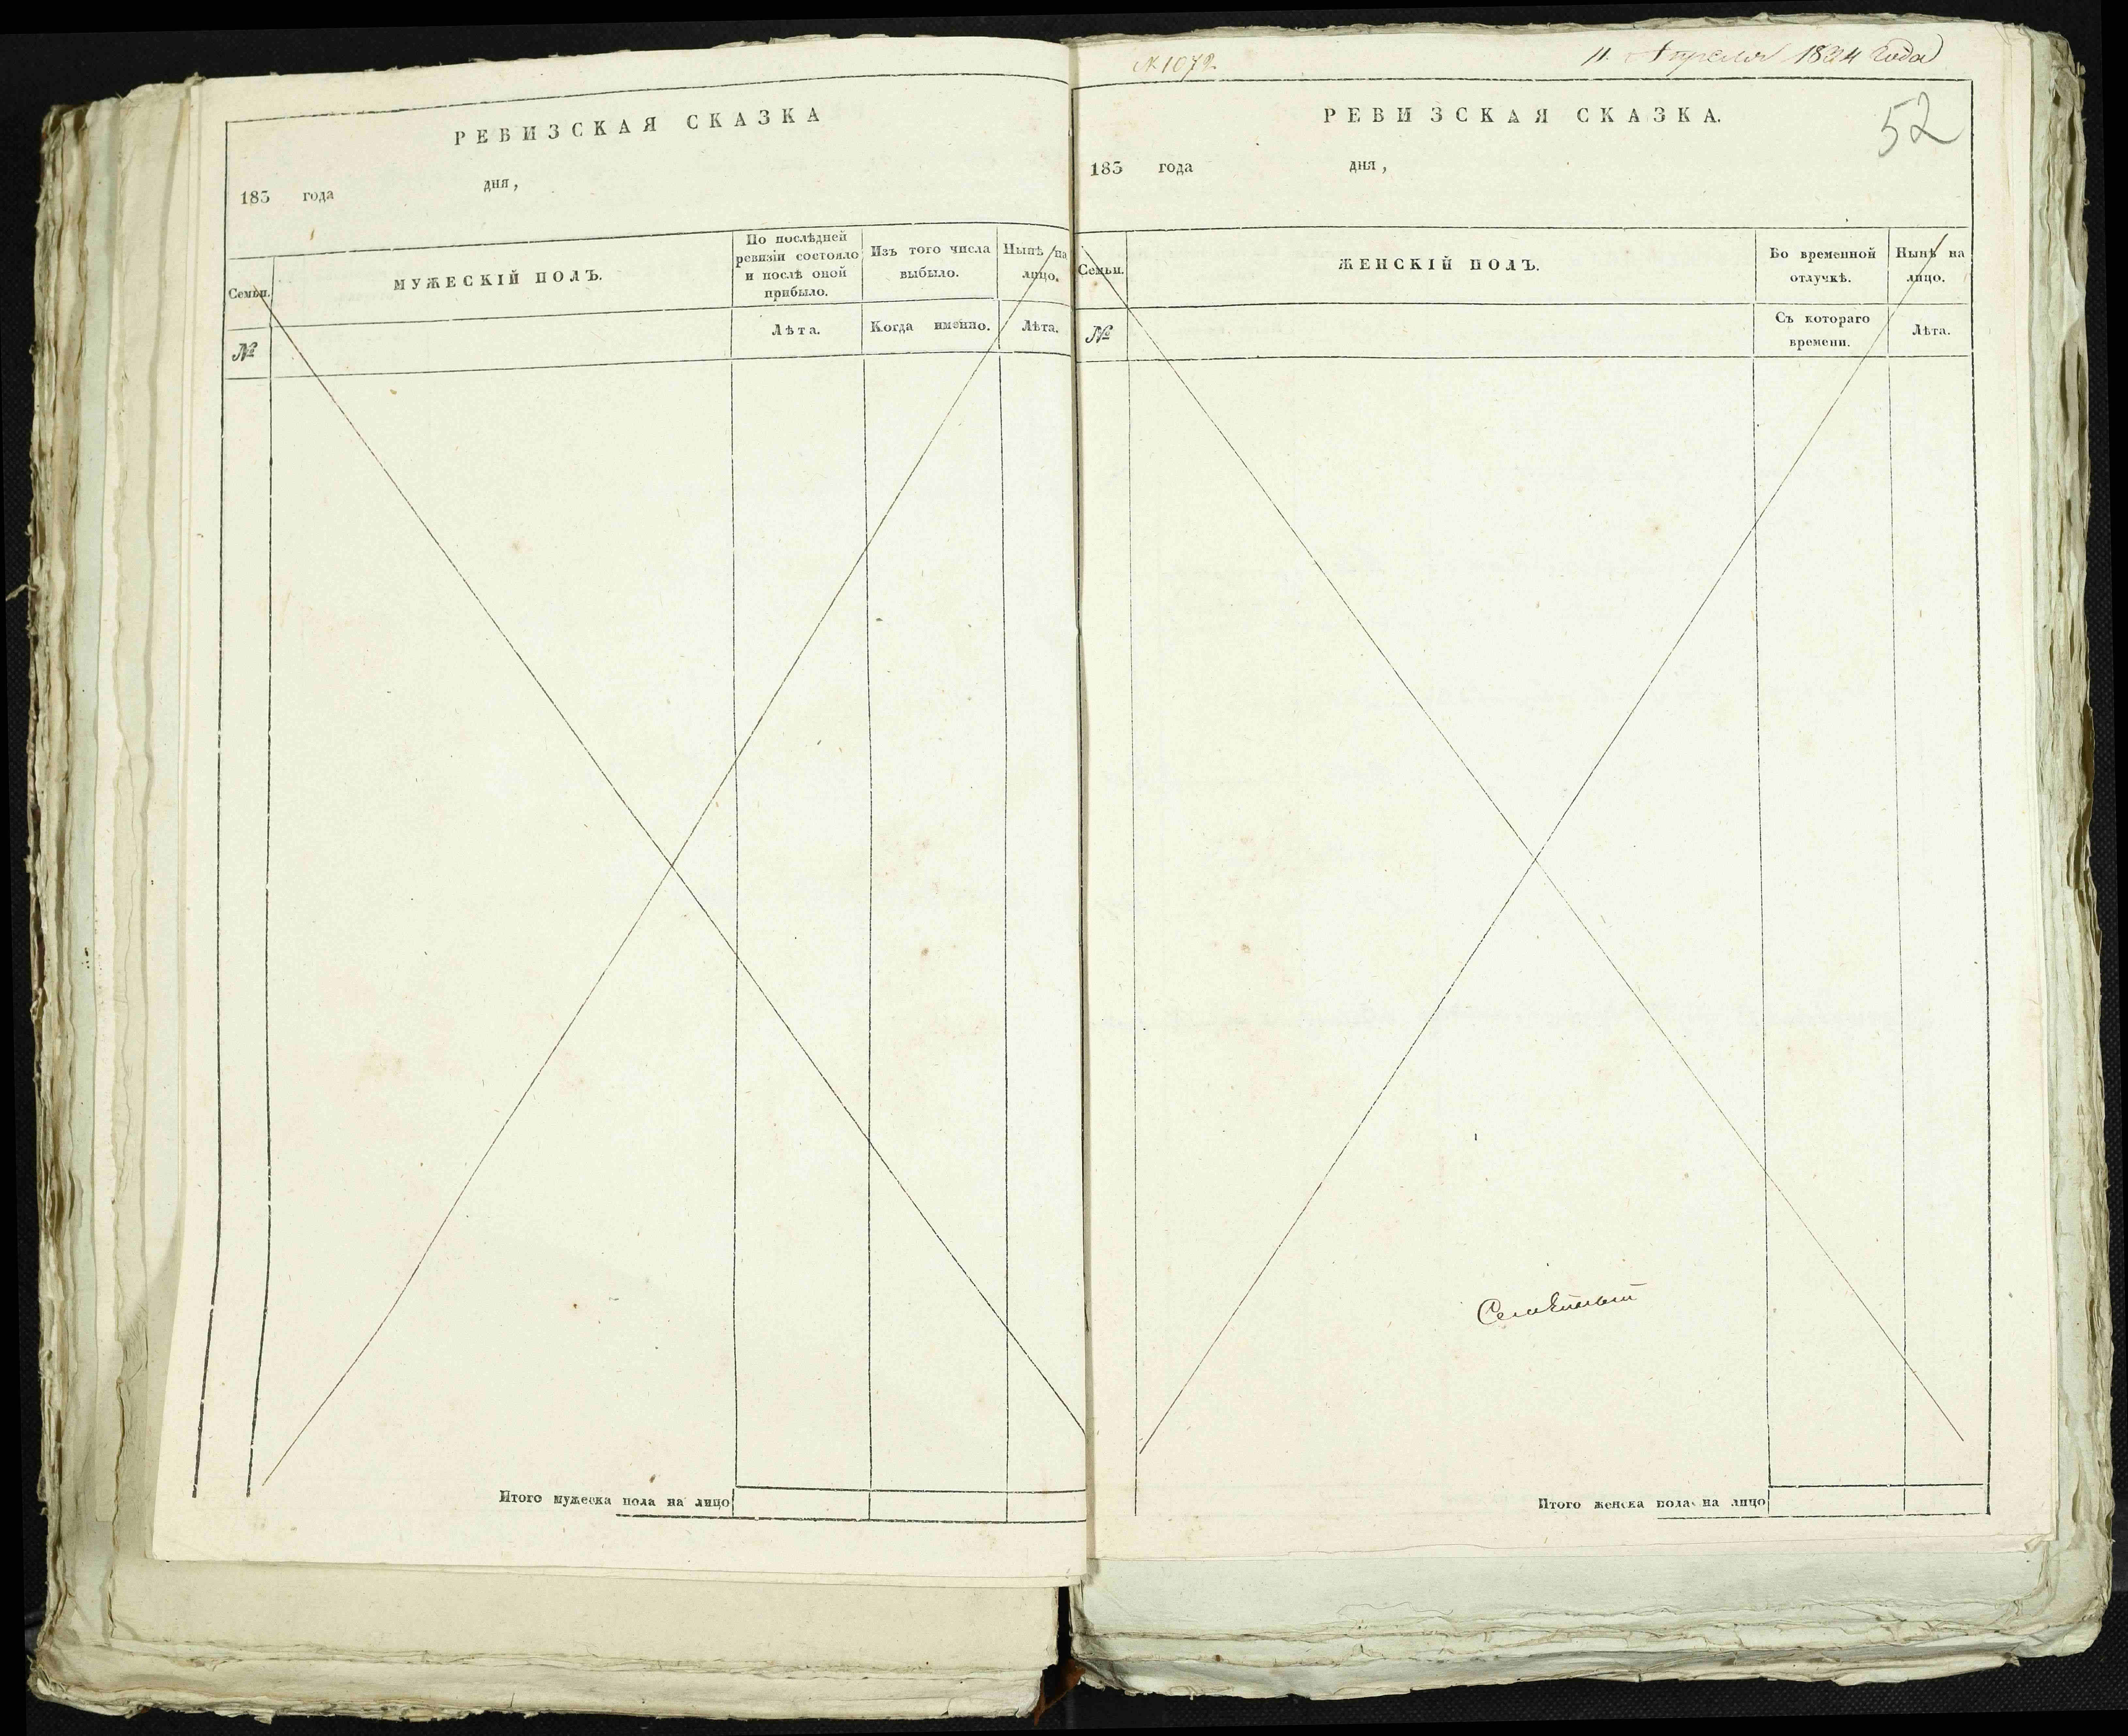 РЕВИЗСКАЯ СКАЗКА
183 года дня,
Семьи.
МУЖЕСКІЙ ПОЛЪ.
По послѣдней ревизіи состояло и послѣ оной прибыло.
Изъ того числа выбыло.
Нынѣ на лицо.
№
Лѣта.
Когда именно.
Лѣта.
Итого мужеска пола на лицо
№ 1072
11. Апреля 1834 года
52
РЕВИЗСКАЯ СКАЗКА.
183 года дня,
Семьи.
ЖЕНСКІЙ ПОЛЪ.
Во временной отлучкѣ.
Нынѣ на лицо.
№
Съ котораго времени.
Лѣта.
Итого женска пола на лицо